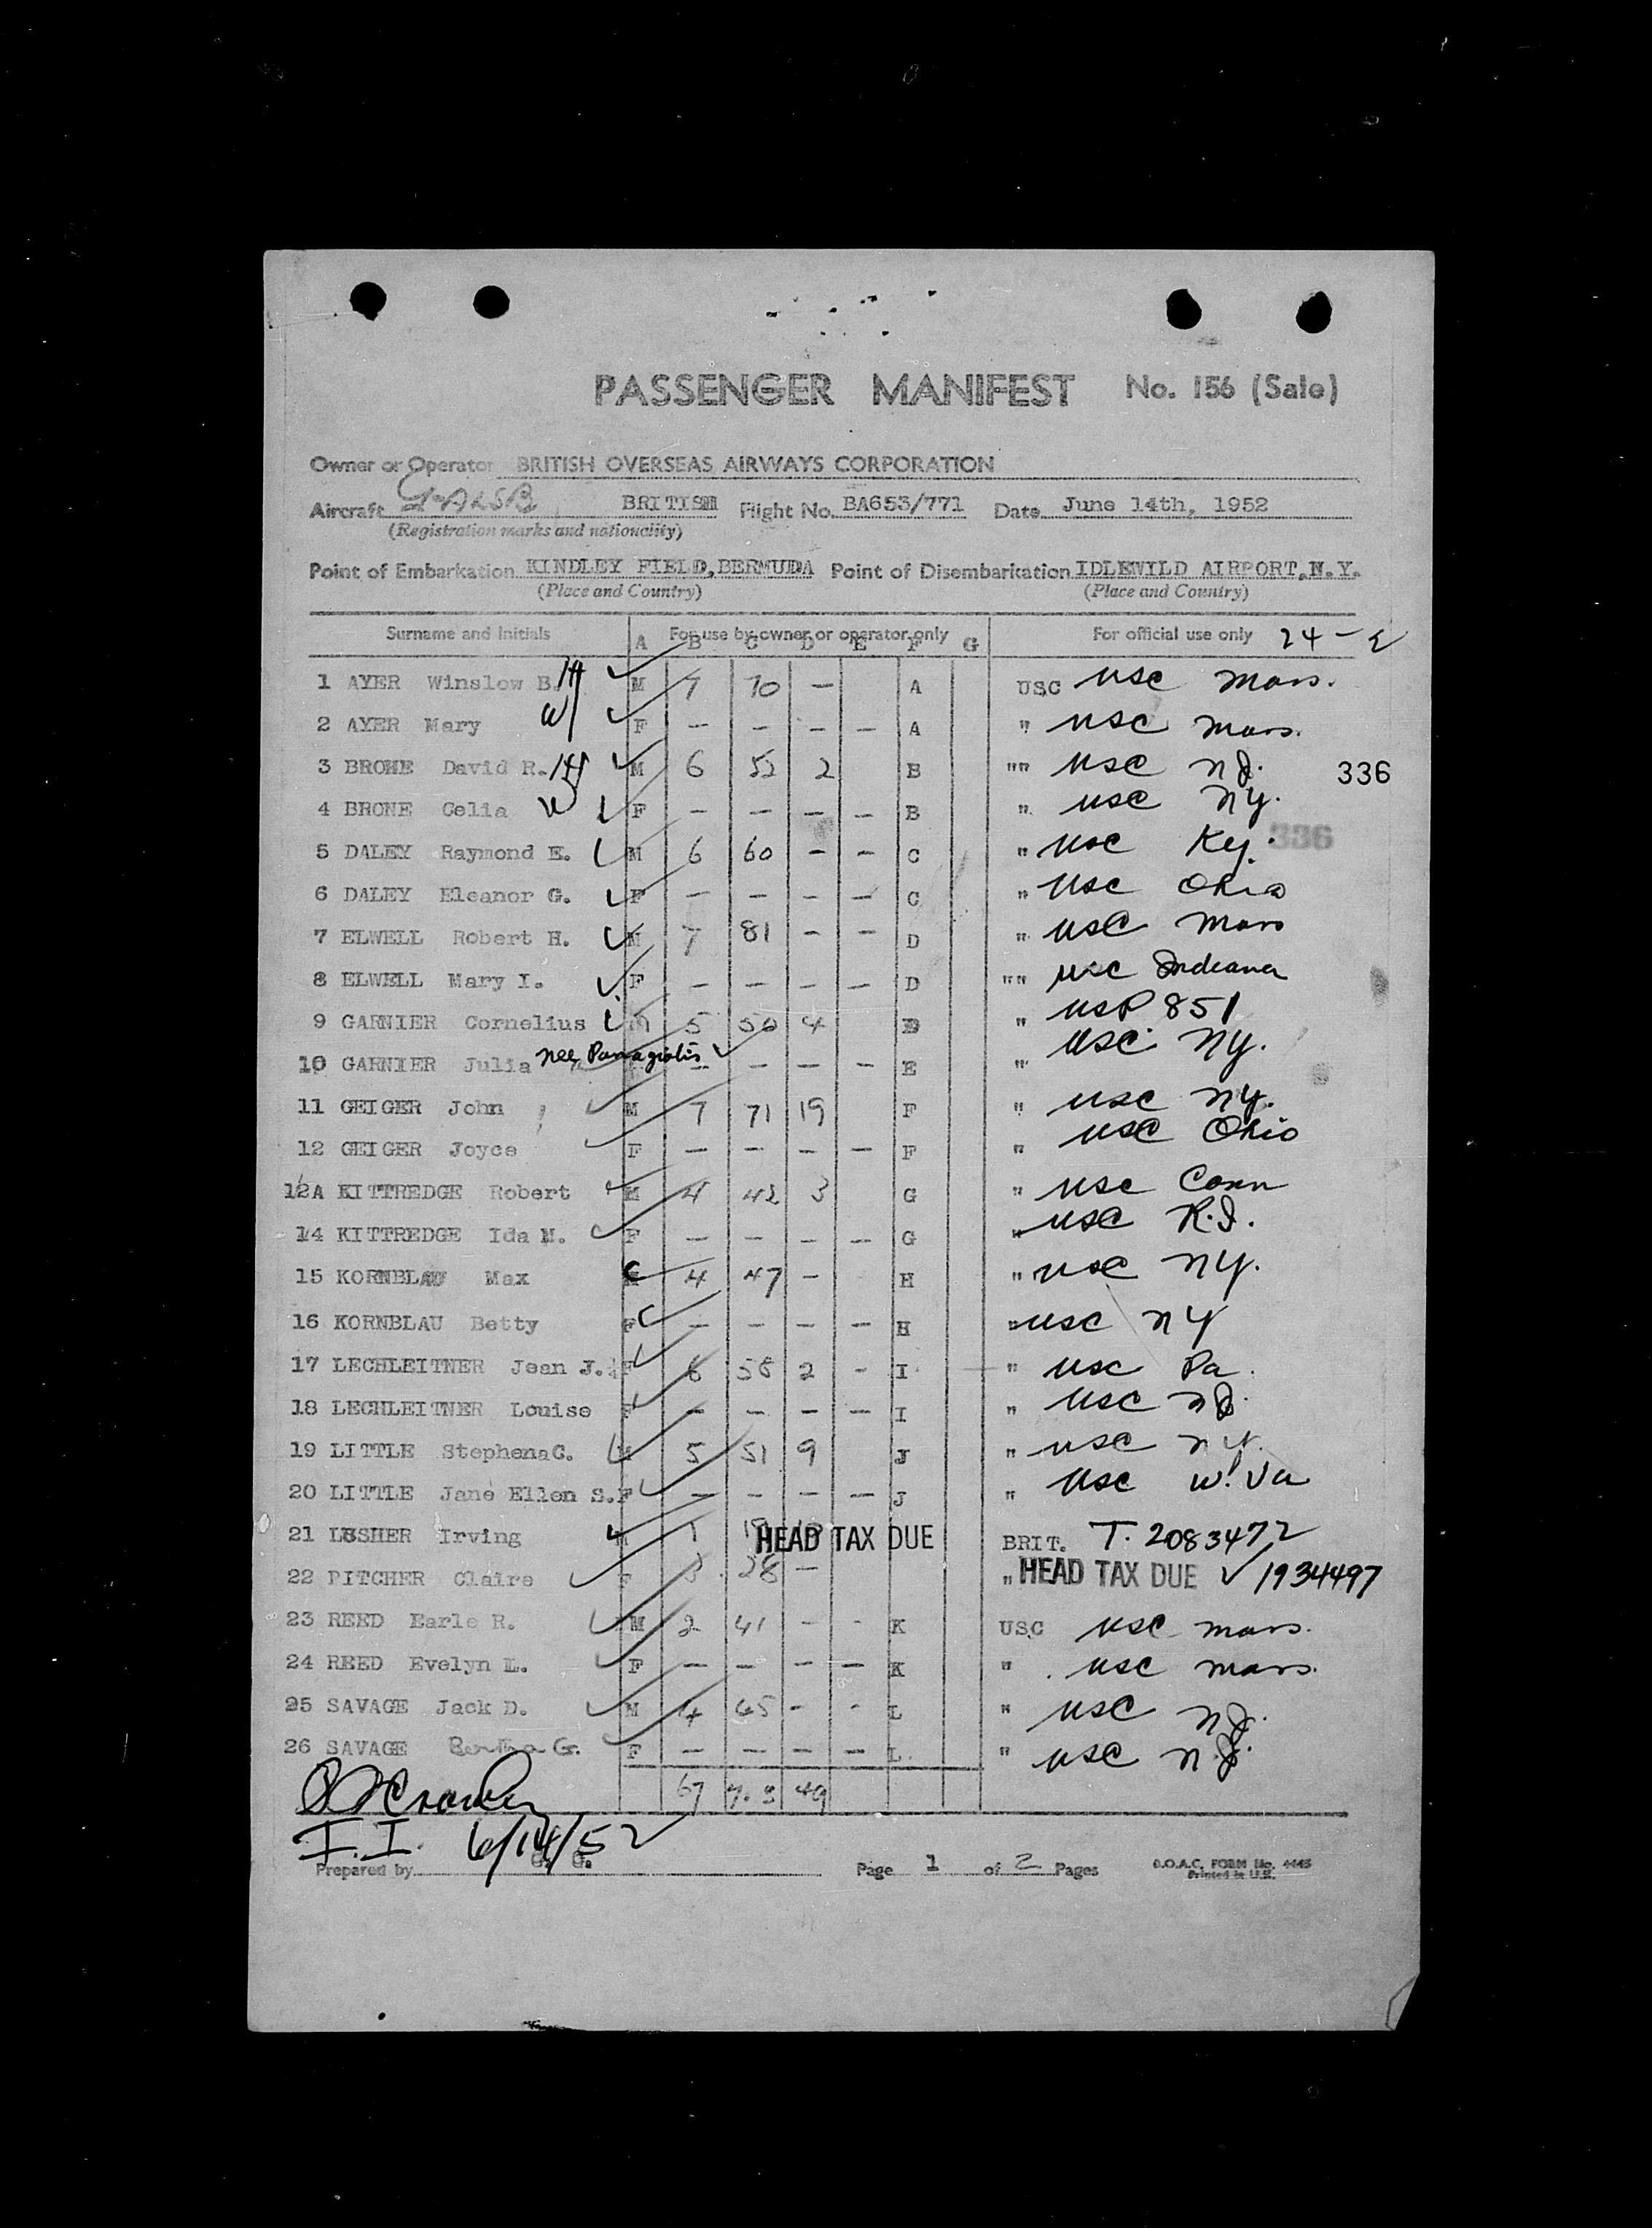 PASSENGER MANIFEST No. 156 (Sale)
Owner or Operator BRITISH OVERSEAS AIRWAYS CORPORATION
Aircraft G-ALSB BRITISH Flight No. BA653/771 Date June 14th, 1952
(Registration marks and nationality)
Point of Embarkation KINDLEY FIELD, BERMUDA Point of Disembarkation IDLEWILD AIRPORT, N.Y.
(Place and Country) (Place and Country)
Surname and Initials For use by owner or operator only For official use only 24 -
A B C D E F G
1 AYER Winslow B. H M 7 70 — A USC USC Mass.
2 AYER Mary W F — — — — A " USC Mass.
3 BRONE David R. H M 6 52 2 B "" USC NJ. 336
4 BRONE Celia W F — — — — B " USC NY.
5 DALEY Raymond E. M 6 60 - - C " USC Ky. 336
6 DALEY Eleanor G. F — — — — C " USC Ohio
7 ELWELL Robert H. M 7 81 - - D " USC Mass
8 ELWELL Mary I. F — — — — D "" USC Indiana
9 GARNIER Cornelius M 5 50 4 E " USP 851
10 GARNIER Julia nee Panagiotis — — — — E " USC NY.
11 GEIGER John M 7 71 19 F " USC NY.
12 GEIGER Joyce F — — — — F " USC Ohio
12A KITTREDGE Robert M 4 42 3 G " USC Conn
14 KITTREDGE Ida M. F — — — — G " USC R.I.
15 KORNBLAU Max M 4 47 - H " USC NY.
16 KORNBLAU Betty F — — — — H " USC NY
17 LECHLEITNER Jean J. F 6 58 2 - I " USC Pa.
18 LECHLEITNER Louise F — — — — I " USC NJ.
19 LITTLE Stephen C. M 5 51 9 J " USC NY.
20 LITTLE Jane Ellen S. F — — — — J " USC W. Va
21 LUSHER Irving M 1 HEAD TAX DUE BRIT. T. 2083472
22 PITCHER Claire F 3 28 — " HEAD TAX DUE 1934497
23 REED Earle R. M 2 41 - - K USC USC Mass.
24 REED Evelyn L. F — — — — K " USC Mass.
25 SAVAGE Jack D. M 4 65 - - L " USC N.J.
26 SAVAGE Bertha G. F — — — — L " USC N.J.
67 49
I.I. 6/14/52
Prepared by G. G. Page 1 of 2 Pages B.O.A.C. FORM No. 4445
Printed in U.K.